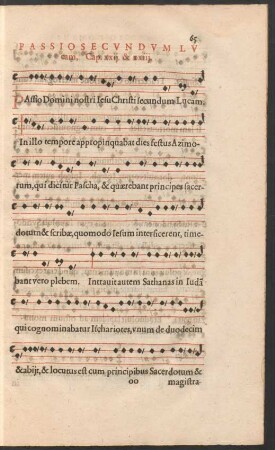 65
PASSIO SECVNDVM LV
cam. Cap. xxij. & xxiij.
PAssio Domini nostri Iesu Christi secundum Lucam.
In illo tempore appropinquabat dies festus Azimo-
rum, qui dicitur Pascha, & quærebant principes sacer-
dotum & scribæ, quomodo Iesum interficerent, time-
bant vero plebem. Intrauit autem Sathanas in Iudã
qui cognominabatur Ischariotes, vnum de duodecim
& abijt, & locutus est cum principibus Sacerdotum &
oo magistra-